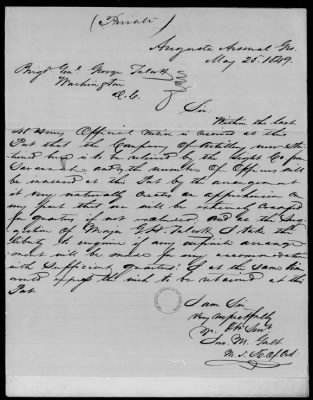 (Private)
Augusta Arsenal Geo.
May 25th 1849.
Brigd Genl. George Talcott
Washington
D.C.
Sir
Within the last
48 hours Official notice is received at this
Post that the Company of Artillery now sta-
tioned here is to be relieved by the Light Co from
Savannah and the number of Officers will
be increased at this Post by the arrangement
it very naturally creates an apprehension on
my part that we will be cramped
for quarters if not excluded, and at the sug-
gestion of Major G. H. Talcott I take the
liberty to enquire if any definite arrange-
ment will be made for my accommodation
with sufficient quarters: I at the same time
would express the wish to be retained at this
Post.
I am Sir
Very respectfully
Yr. Obt Servt.
Jno. M. Galt
M. S. K. of Ord